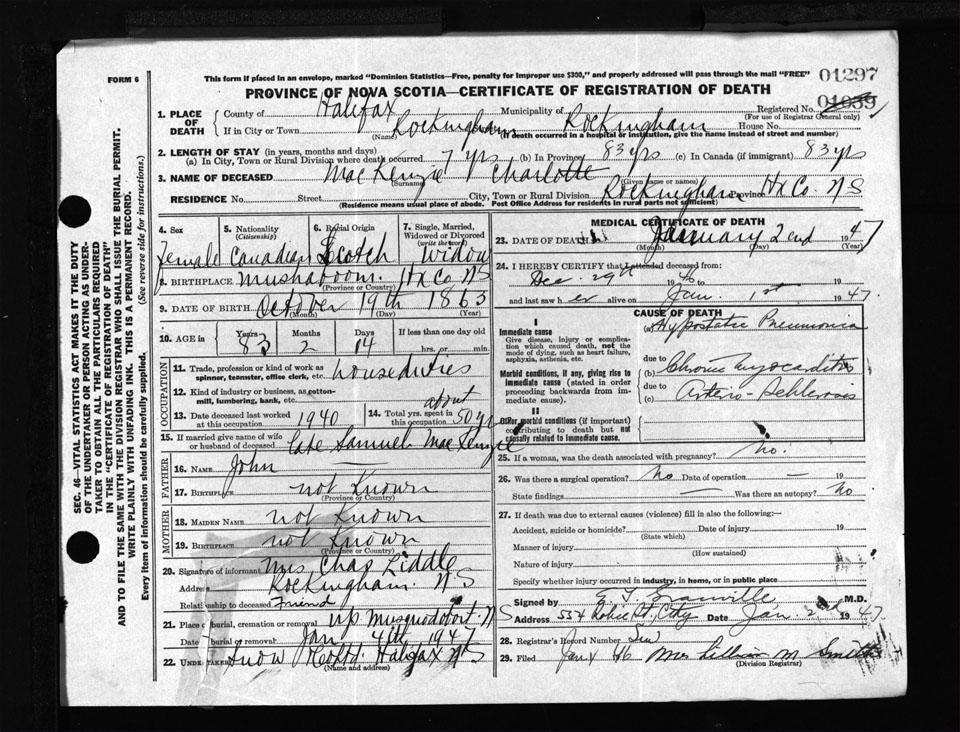 FORM 6
This form if placed in an envelope, marked "Dominion Statistics—Free, penalty for improper use $300," and properly addressed will pass through the mail "FREE"
01297
PROVINCE OF NOVA SCOTIA—CERTIFICATE OF REGISTRATION OF DEATH
01039
1. PLACE OF DEATH
County of Halifax Municipality of Rockingham Registered No.
(For use of Registrar General only)
If in City or Town Rockingham House No.
(Name) (If death occurred in a hospital or institution, give the name instead of street and number)
2. LENGTH OF STAY (in years, months and days)
(a) In City, Town or Rural Division where death occurred 7 yrs (b) In Province 83 yrs (c) In Canada (if immigrant) 83 yrs
3. NAME OF DECEASED MacKenzie Charlotte
(Surname) (Given name or names)
RESIDENCE No. Street City, Town or Rural Division Rockingham Province Hx Co. N S
(Residence means usual place of abode. Post Office Address for residents in rural parts not sufficient)
4. Sex
Female
5. Nationality
(Citizenship)
Canadian
6. Racial Origin
Scotch
7. Single, Married, Widowed or Divorced
(write the word)
Widow
8. BIRTHPLACE Mushaboom. Hx Co. N S
(Province or Country)
9. DATE OF BIRTH October 19th 1863
(Month) (Day) (Year)
10. AGE in
Years Months Days If less than one day old
83 2 14 hrs. or min.
OCCUPATION
11. Trade, profession or kind of work as
spinner, teamster, office clerk, etc. houseduties
12. Kind of industry or business, as cotton-
mill, lumbering, bank, etc.
13. Date deceased last worked
at this occupation 1940
14. Total yrs. spent in
this occupation about 50 yrs
15. If married give name of wife
or husband of deceased Late Samuel MacKenzie
FATHER
16. NAME John —
17. BIRTHPLACE not Known
(Province or Country)
MOTHER
18. MAIDEN NAME not Known
19. BIRTHPLACE not Known
(Province or Country)
20. Signature of informant Mrs Chas Liddle
Address Rockingham. N S
Relationship to deceased Friend
21. Place of burial, cremation or removal Up Musquodoboit N S
Date of burial or removal Jan 4th 1947
22. UNDERTAKER Snow Halifax N S
(Name and address)
MEDICAL CERTIFICATE OF DEATH
23. DATE OF DEATH January 2nd 1947
(Month) (Day) (Year)
24. I HEREBY CERTIFY that I attended deceased from:
Dec. 29th 1946 to
and last saw her alive on Jan. 1st 1947.
CAUSE OF DEATH
I
Immediate cause
Give disease, injury, or complica-
tion which caused death, not the
mode of dying, such as heart failure,
asphyxia, asthenia, etc.
(a) Hypostatic Pneumonia
due to
Morbid conditions, if any, giving rise to
immediate cause (stated in order
proceeding backwards from im-
mediate cause).
(b) Chronic Myocarditis
due to
(c) Arterio-Schlerosis
II
Other morbid conditions (if important)
contributing to death but not
causally related to immediate cause.
25. If a woman, was the death associated with pregnancy? no.
26. Was there a surgical operation? No Date of operation — 19
State findings — Was there an autopsy? No
27. If death was due to external causes (violence) fill in also the following:—
Accident, suicide or homicide? Date of injury 19
(State which)
Manner of injury
(How sustained)
Nature of injury
Specify whether injury occurred in industry, in home, or in public place
Signed by E. T. Granville M.D.
Address 554 Robie St, City Date Jan 2nd 1947
28. Registrar's Record Number
29. Filed Jan 4 Mrs Lillian M Smith
(Division Registrar)
SEC. 46—VITAL STATISTICS ACT MAKES IT THE DUTY
OF THE UNDERTAKER OR PERSON ACTING AS UNDER-
TAKER TO OBTAIN ALL THE PARTICULARS REQUIRED
IN THE "CERTIFICATE OF REGISTRATION OF DEATH"
AND TO FILE THE SAME WITH THE DIVISION REGISTRAR WHO SHALL ISSUE THE BURIAL PERMIT.
WRITE PLAINLY WITH UNFADING INK. THIS IS A PERMANENT RECORD.
Every item of information should be carefully supplied. (See reverse side for instructions.)